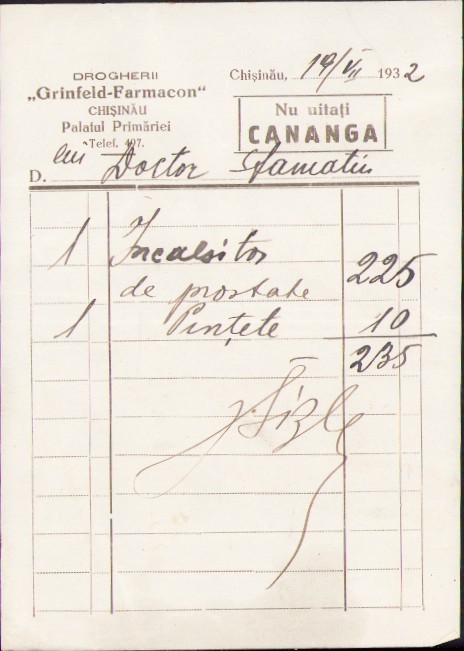 DROGHERII
„Grinfeld-Farmacon"
CHIȘINĂU
Palatul Primăriei
Telef. 407.
Chișinău, 19/VII 1932
Nu uitați
CANANGA
D. lui Doctor Stamatin
1 Incalsitor 225
de prostate
1 Pințete 10
235